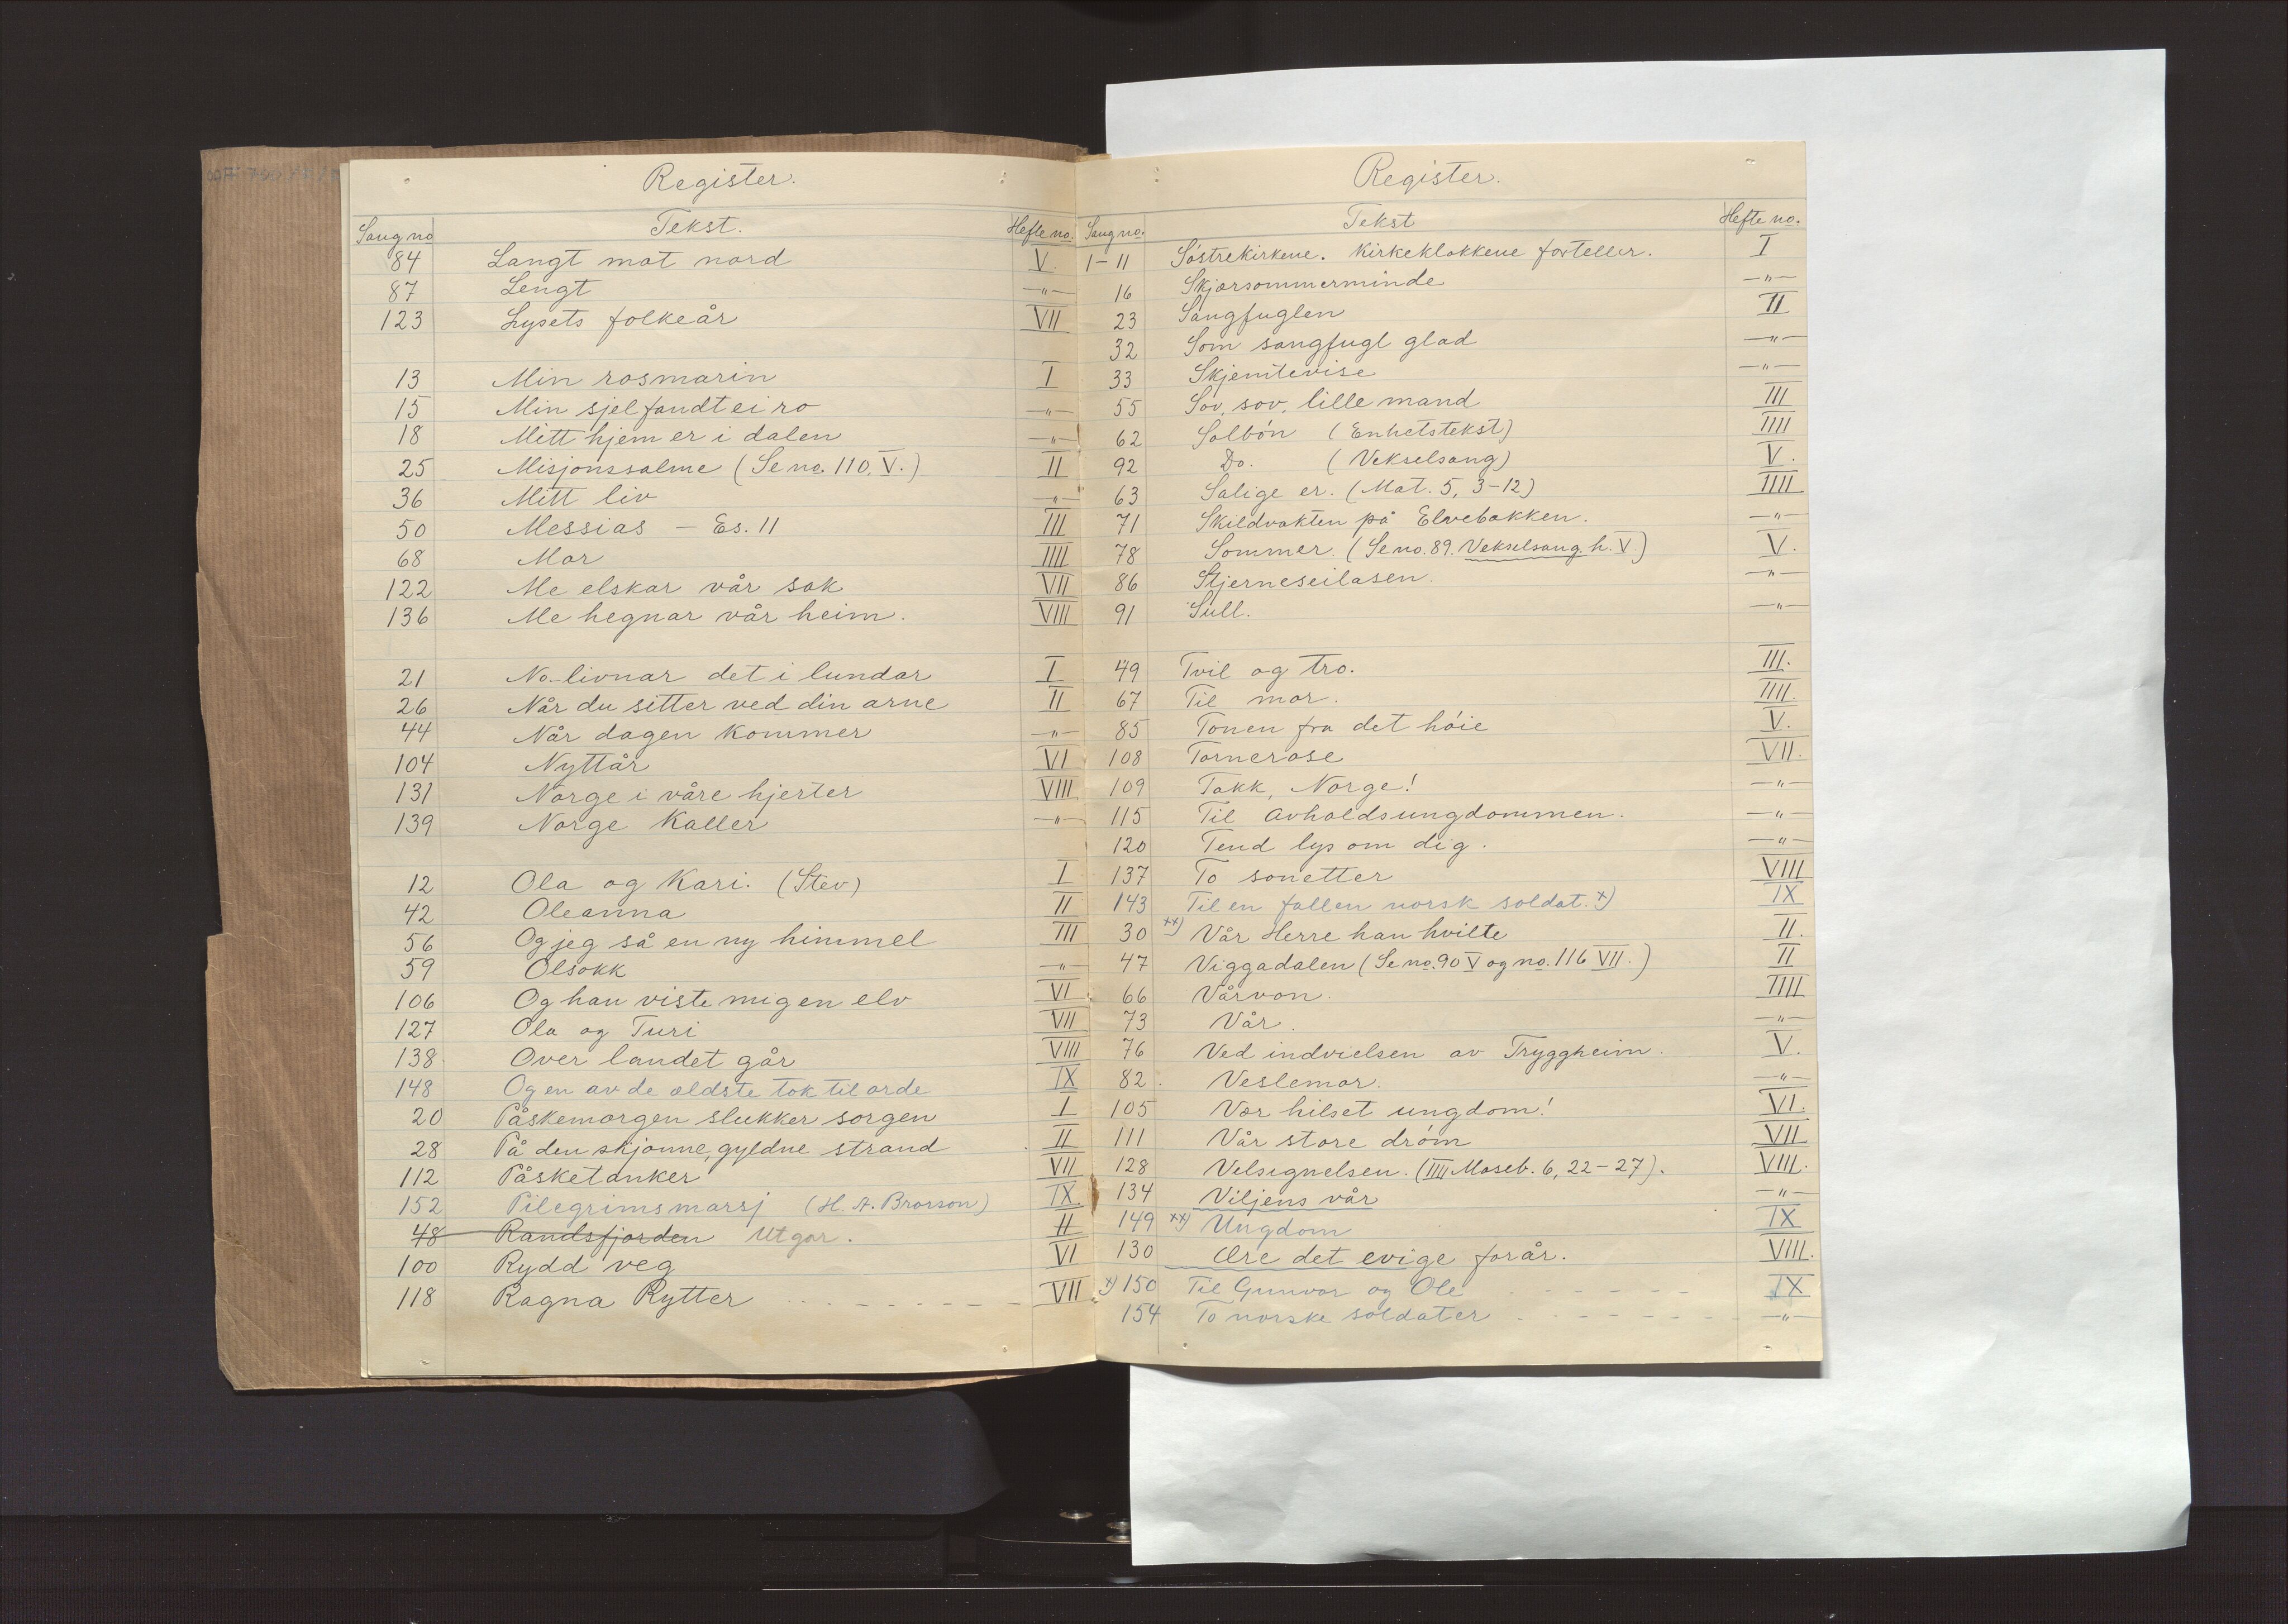 Register.
Sang no Tekst. Hefte no.
84 Langt mot nord V.
87 Lengt —"—
123 Lysets folkeår VII
13 Min rosmarin I
15 Min sjel fandt ei ro —"—
18 Mitt hjem er i dalen —"—
25 Misjonssalme (Se no. 110, V.) II
36 Mitt liv —"—
50 Messias — Es. 11 III
68 Mor IIII
122 Me elskar vår sak VII
136 Me hegnar vår heim. VIII
21 No livnar det i lundar I
26 Når du sitter ved din arne II
44 Når dagen kommer —"—
104 Nyttår VI
131 Norge i våre hjerter VIII
139 Norge kaller —"—
12 Ola og Kari. (Stev) I
42 Oleanna II
56 Og jeg så en ny himmel III
59 Olsokk —"—
106 Og han viste mig en elv VI
127 Ola og Turi VII
138 Over landet går VIII
148 Og en av de ældste tok til orde IX
20 Påskemorgen slukker sorgen I
28 På den skjønne, gyldne strand II
112 Påsketanker VII
152 Pilegrimsmarsj (H. A. Brorson) IX
48 Randsfjorden Utgar. II
100 Rydd veg VI
118 Ragna Rytter - - - - - - - VII
Register.
Sang no. Tekst Hefte no.
1-11 Søstrekirkene. Kirkeklokkene forteller. I
16 Skjærsommerminde —"—
23 Sangfuglen II
32 Som sangfugl glad —"—
33 Skjemtevise —"—
55 Sov, sov, lille mand III
62 Solbøn (Enhetstekst) IIII
92 Do. (Vekselsang) V.
63 Salige er. (Mat. 5, 3-12) IIII
71 Skildvakten på Elvebakken. —"—
78 Sommer. (Se no. 89. Vekselsang. h. V.) V.
86 Stjerneseilasen. —"—
91 Sull. —"—
49 Tvil og tro. III.
67 Til mor. IIII.
85 Tonen fra det høie V.
108 Tornerose VII.
109 Takk, Norge! —"—
115 Til avholdsungdommen. —"—
120 Tend lys om dig. —"—
137 To sonetter VIII
143 Til en fallen norsk soldat. x) IX
30 xx) Vår Herre han hvilte II.
47 Viggadalen (Se no. 90 V og no. 116 VII.) II
66 Vårvon. IIII
73 Vår. —"—
76 Ved indvielsen av Tryggheim. V.
82. Veslemor. —"—
105 Vær hilset ungdom! VI.
111 Vår store drøm VII
128 Velsignelsen. (IIII Moseb. 6, 22-27). VIII.
134 Viljens vår —"—
149 xx) Ungdom IX
130 Ære det evige forår. VIII.
x) 150 Til Gunvor og Ole - - - - - - - IX
154 To norske soldater - - - - - - - —"—